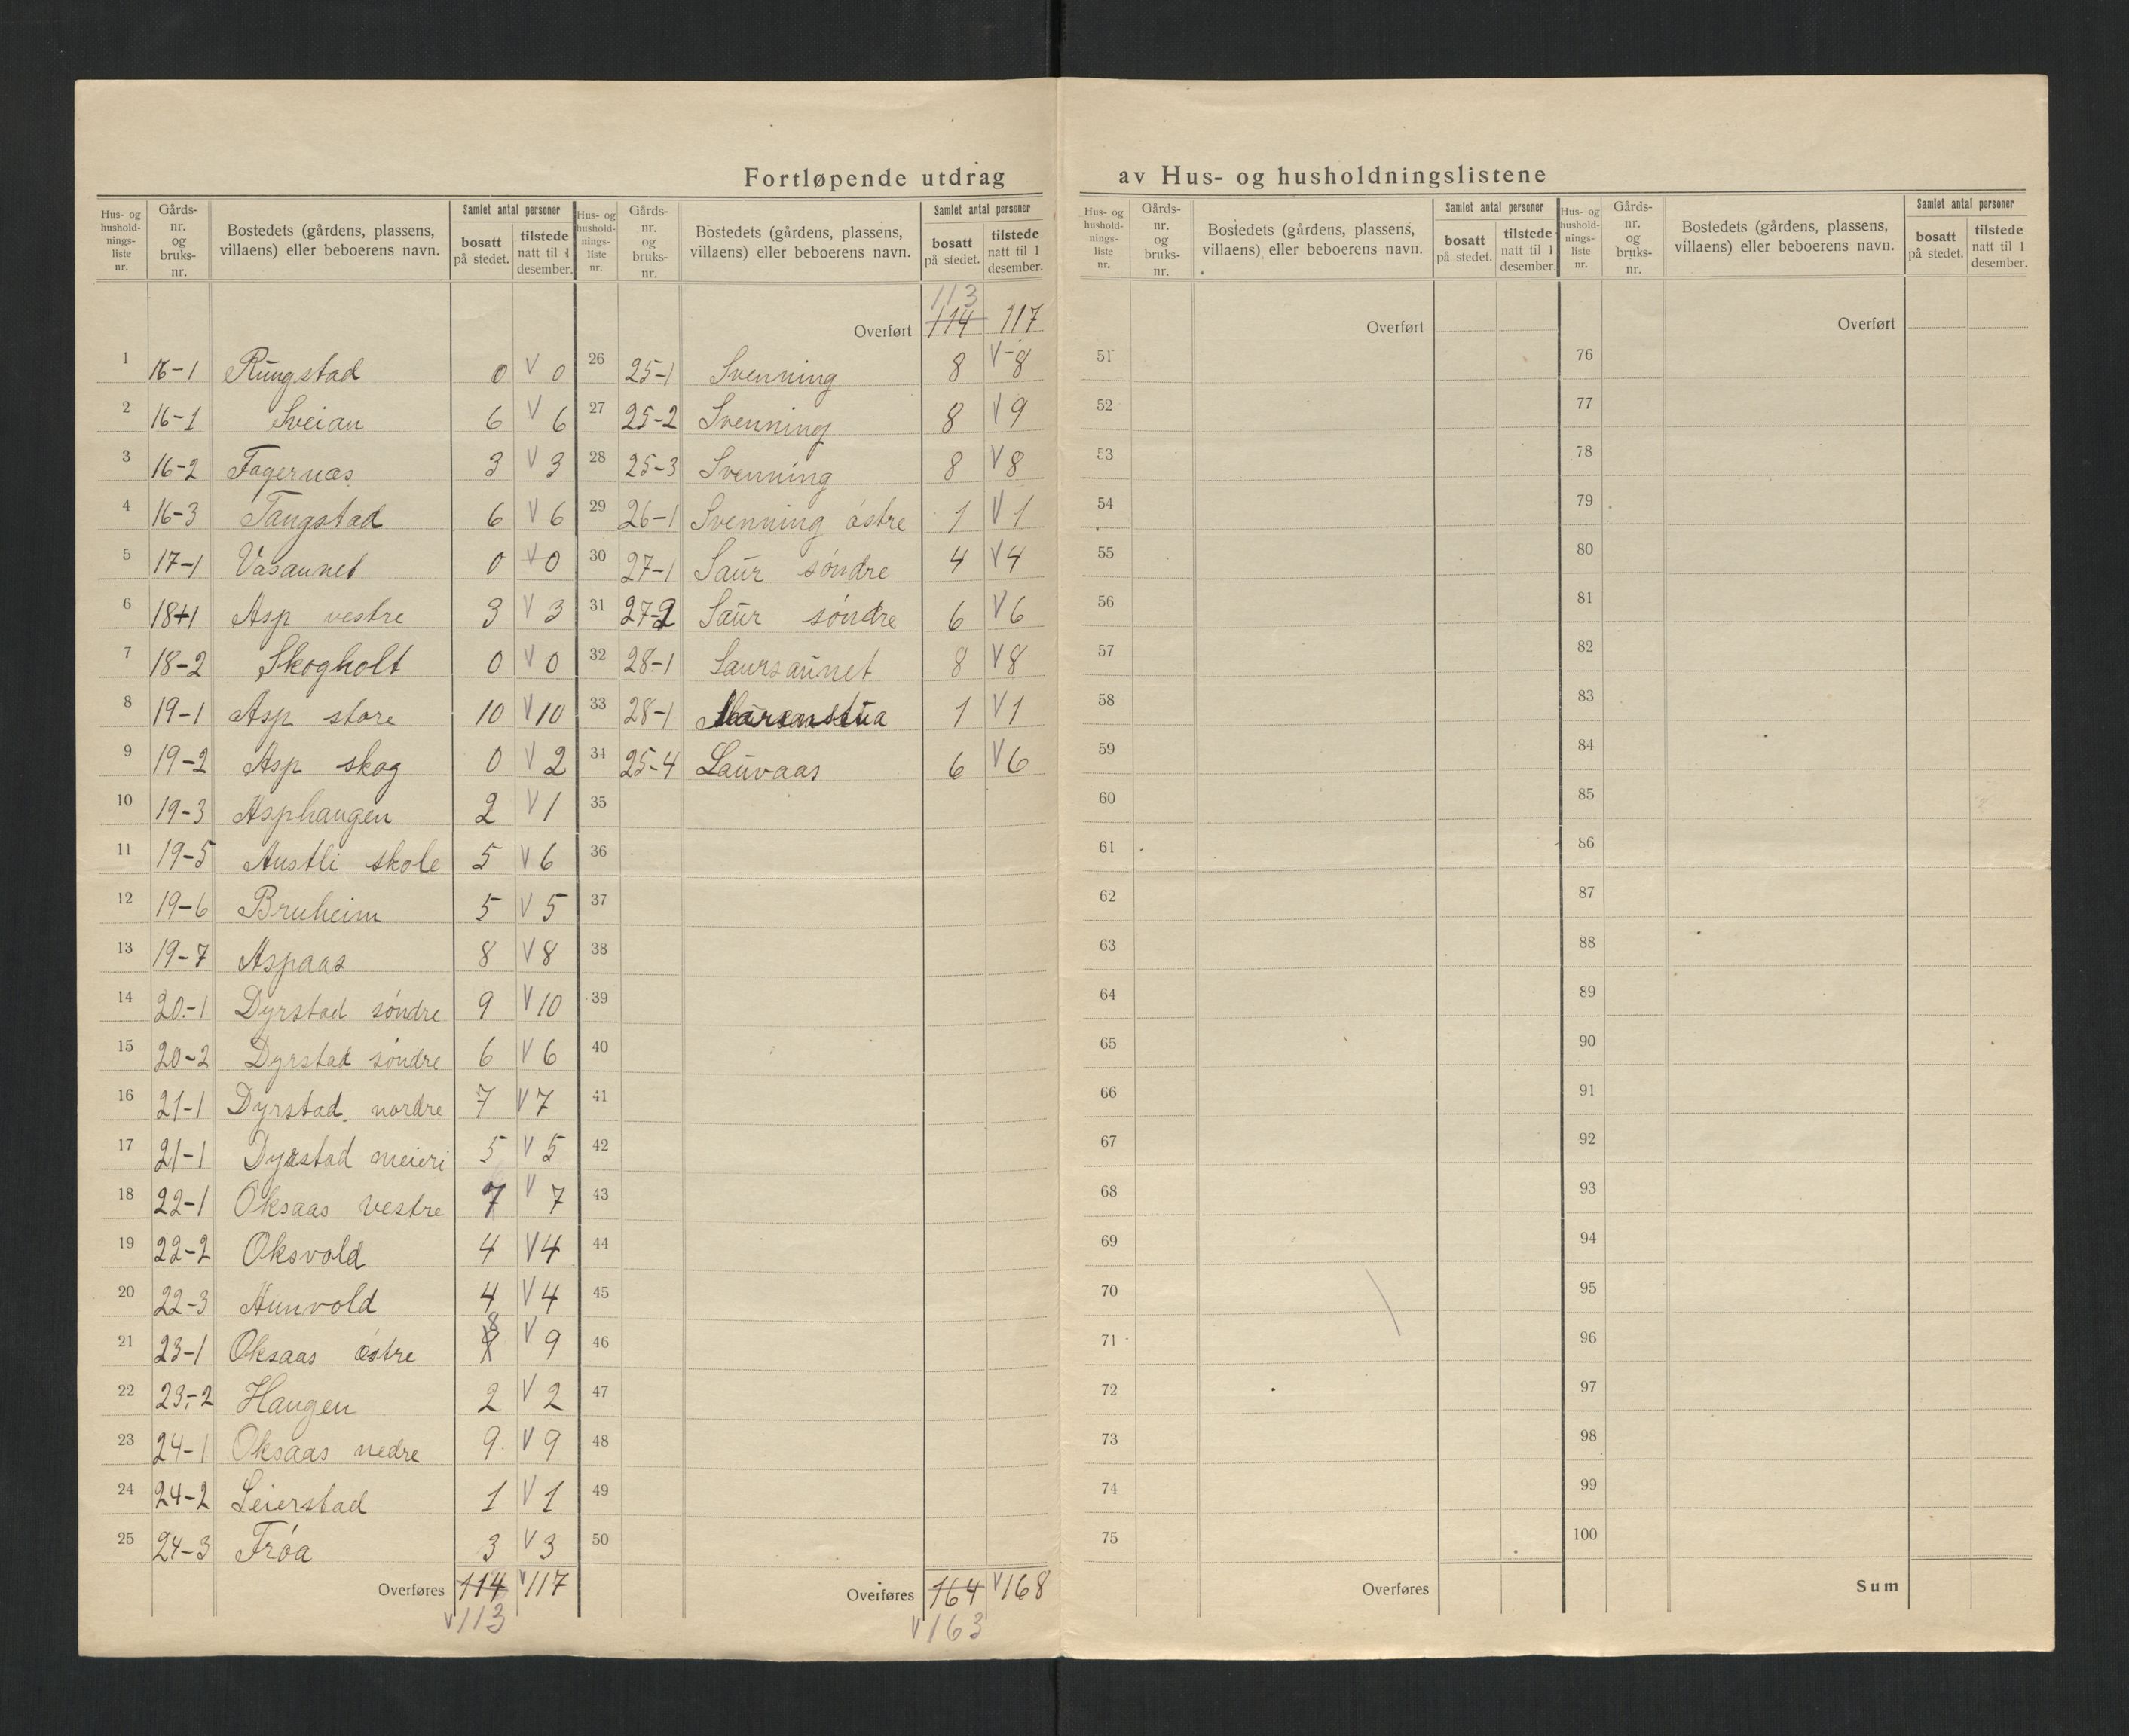 Fortløpende utdrag av Hus- og husholdningslistene
Hus- og hushold-nings-liste nr. | Gårds-nr. og bruks-nr. | Bostedets (gårdens, plassens, villaens) eller beboerens navn. | Samlet antal personer bosatt på stedet. | tilstede natt til 1 desember.
1 16-1 Rungstad 0 V 0
2 16-1 Sveian 6 V 6
3 16-2 Fagernæs 3 V 3
4 16-3 Tangstad 6 V 6
5 17-1 Vasaunet 0 V 0
6 18-1 Asp vestre 3 V 3
7 18-2 Skogholt 0 V 0
8 19-1 Asp store 10 V 10
9 19-2 Asp skog 0 V 2
10 19-3 Asphaugen 2 V 1
11 19-5 Austli skole 5 V 6
12 19-6 Bruheim 5 V 5
13 19-7 Aspaas 8 V 8
14 20-1 Dyrstad söndre 9 V 10
15 20-2 Dyrstad söndre 6 V 6
16 21-1 Dyrstad nordre 7 V 7
17 21-1 Dyrstad meieri 5 V 5
18 22-1 Oksaas vestre 7 V 7
19 22-2 Oksvold 4 V 4
20 22-3 Aunvold 4 V 4
21 23-1 Oksaas östre 9 8 V 9
22 23-2 Haugen 2 V 2
23 24-1 Oksaas nedre 9 V 9
24 24-2 Leierstad 1 V 1
25 24-3 Fróa 3 V 3
Overføres 114 V 117
V 113
Hus- og hushold-nings-liste nr. | Gårds-nr. og bruks-nr. | Bostedets (gårdens, plassens, villaens) eller beboerens navn. | Samlet antal personer bosatt på stedet. | tilstede natt til 1 desember.
113
Overført 114 117
26 25-1 Svenning 8 V 8
27 25-2 Svenning 8 V 9
28 25-3 Svenning 8 V 8
29 26-1 Svenning östre 1 V 1
30 27-1 Saur söndre 4 V 4
31 27-2 Saur söndre 6 V 6
32 28-1 Saursaunet 8 V 8
33 28-1 Marenstua 1 V 1
34 25-4 Lauvaas 6 V 6
35
36
37
38
39
40
41
42
43
44
45
46
47
48
49
50
Overføres 164 V 168
V 163
Hus- og hushold-nings-liste nr. | Gårds-nr. og bruks-nr. | Bostedets (gårdens, plassens, villaens) eller beboerens navn. | Samlet antal personer bosatt på stedet. | tilstede natt til 1 desember.
Overført
51
52
53
54
55
56
57
58
59
60
61
62
63
64
65
66
67
68
69
70
71
72
73
74
75
Overføres
Hus- og hushold-nings-liste nr. | Gårds-nr. og bruks-nr. | Bostedets (gårdens, plassens, villaens) eller beboerens navn. | Samlet antal personer bosatt på stedet. | tilstede natt til 1 desember.
Overført
76
77
78
79
80
81
82
83
84
85
86
87
88
89
90
91
92
93
94
95
96
97
98
99
100
Sum